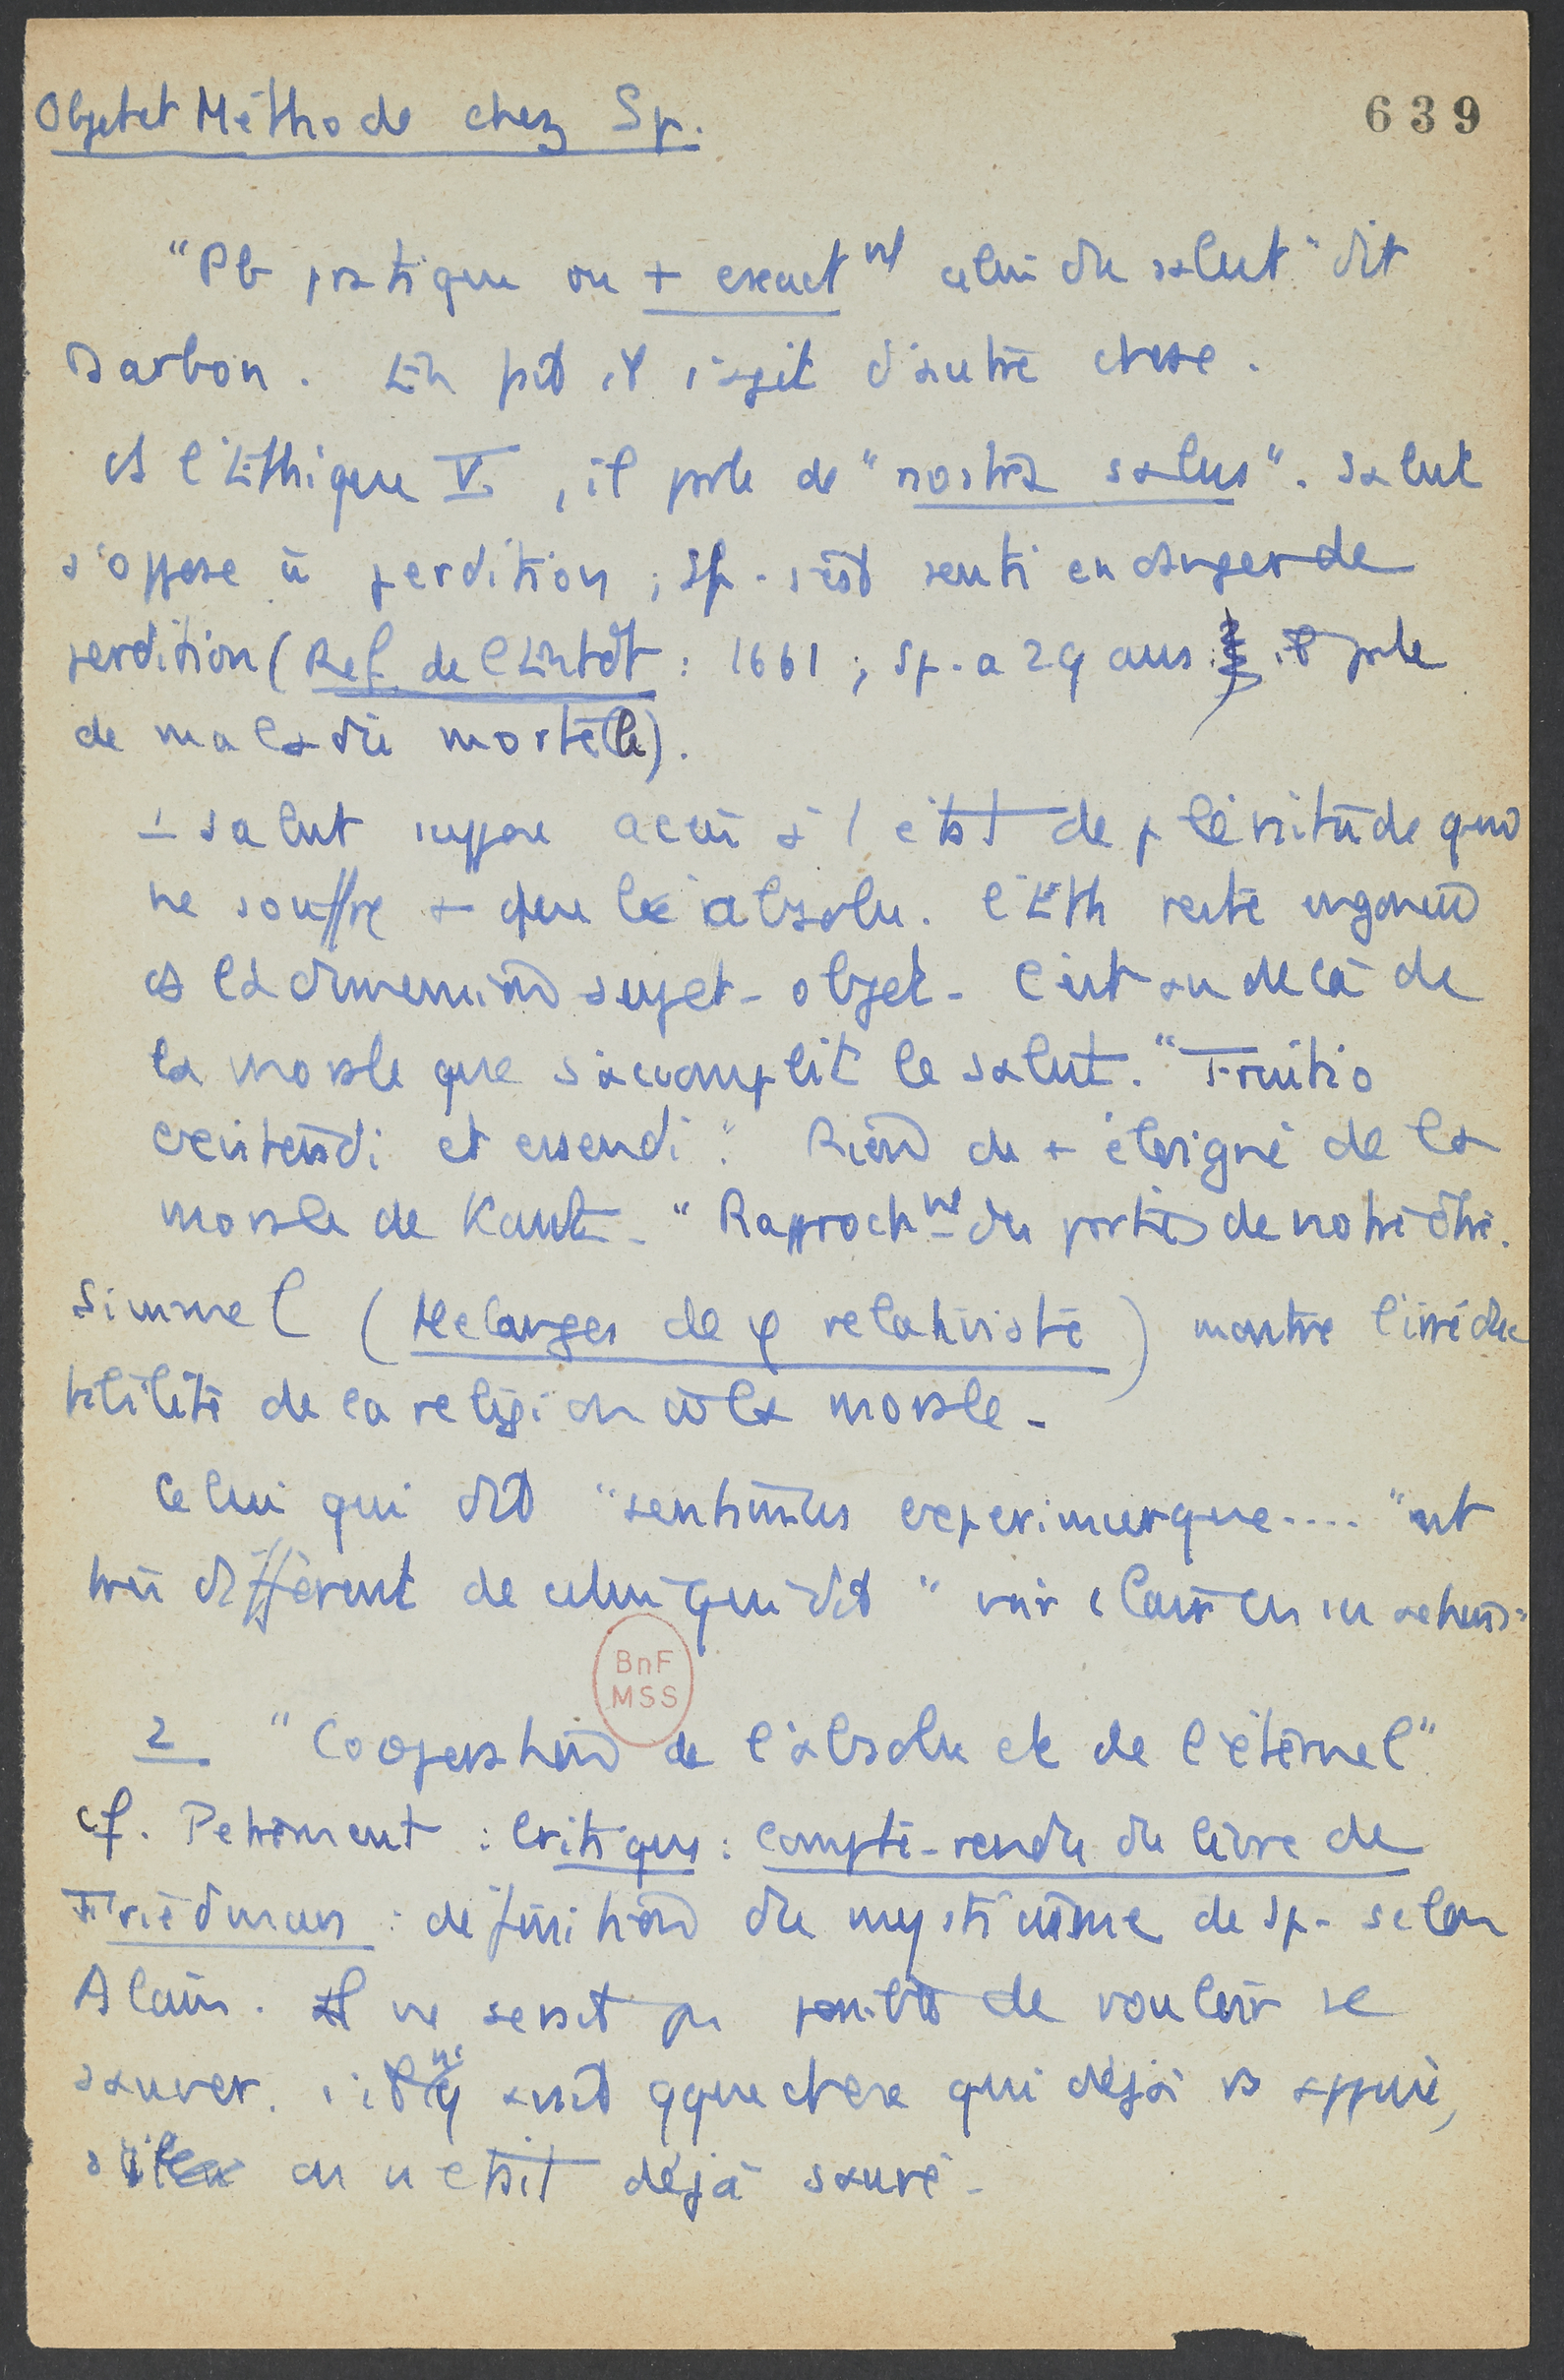 Objet et Méthode chez Sp.
639
"Pb pratique ou + exactmt celui du salut" dit
Darbon. En fait il s'agit d'autre chose.
ds l'Ethique V, il parle de "nostra salus". Salut
s'oppose à perdition ; Sp. s'est senti en danger de
perdition (Ref. de l'Entdt : 1661 ; Sp. a 29 ans. il parle
de maladie mortelle).
1 salut suppose accès à 1 état de plénitude qui
ne souffre + que l'absolu. l'Eth reste
ds la dimension sujet-objet. C'est au delà de
la morale que s'accomplit le salut. "Fruitio
existendi et essendi". Rien de + éloigné de la
morale de Kant. "Rapprochmt des parties de notre être.
Simmel (Mélanges de φ relativiste) montre l'irréduc
tibilité de la religion à la morale.
Celui qui dit "sentimus experimurque...." est
très différent de celui qui dit "voir clair en
BnF
MSS
2 "Coopération de l'absolu et de l'éternel"
cf. Petrement : Critique : compte-rendu du livre de
Friedmann : définition du mysticisme de Sp. selon
Alain. Il ne serait pas possible de vouloir se
sauver, s'il n'y avait qque chose qui déjà ns appuie,
si on n'était déjà sauvé.